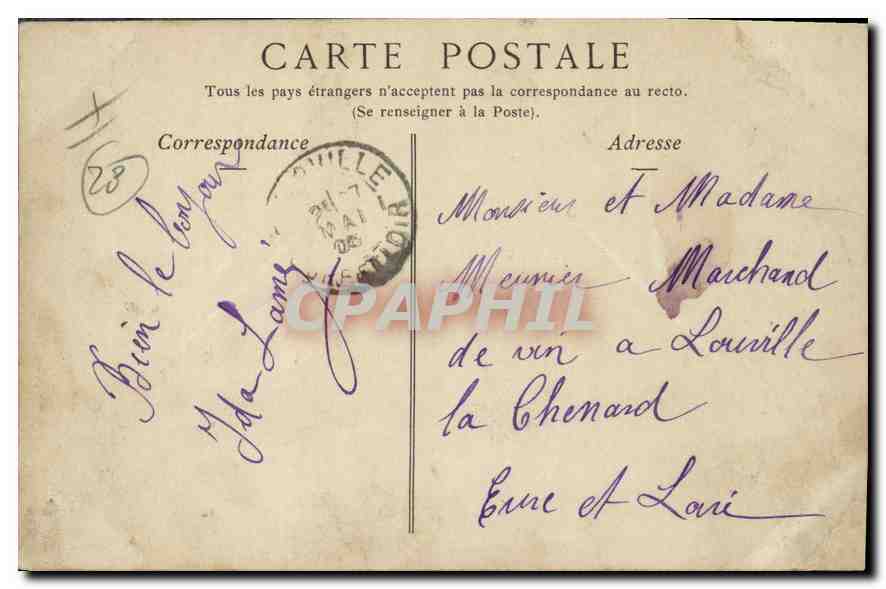 CARTE POSTALE
Tous les pays étrangers n'acceptent pas la correspondance au recto.
(Se renseigner à la Poste).
Correspondance
Adresse
28
Bien le bonjour
Ida Lamé
VILLE
MAI
Monsieur et Madame
Meunier Marchand
de vin a Louville
la Chenard
Eure et Loire
CPAPHIL